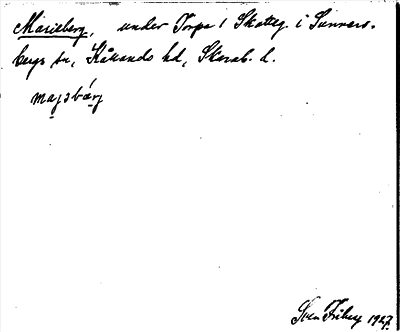 Marieberg, under Torpa 1 Skatteg. i Sunners-
bergs sn, Kållands hd, Skarab. l.
majsbárj
Sven Friberg 1927.